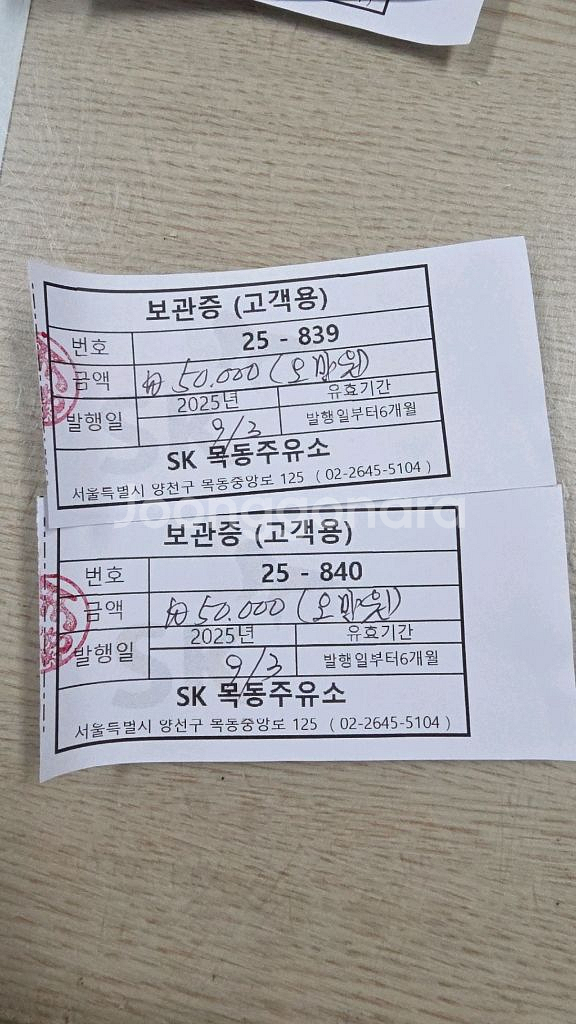 보관증 (고객용)
번호 25 - 839
금액 ₩ 50.000 (오만원)
발행일 2025년 유효기간
9/3 발행일부터6개월
SK 목동주유소
서울특별시 양천구 목동중앙로 125 ( 02-2645-5104 )
Joonggonara
보관증 (고객용)
번호 25 - 840
금액 ₩ 50.000 (오만원)
발행일 2025년 유효기간
9/3 발행일부터6개월
SK 목동주유소
서울특별시 양천구 목동중앙로 125 ( 02-2645-5104 )